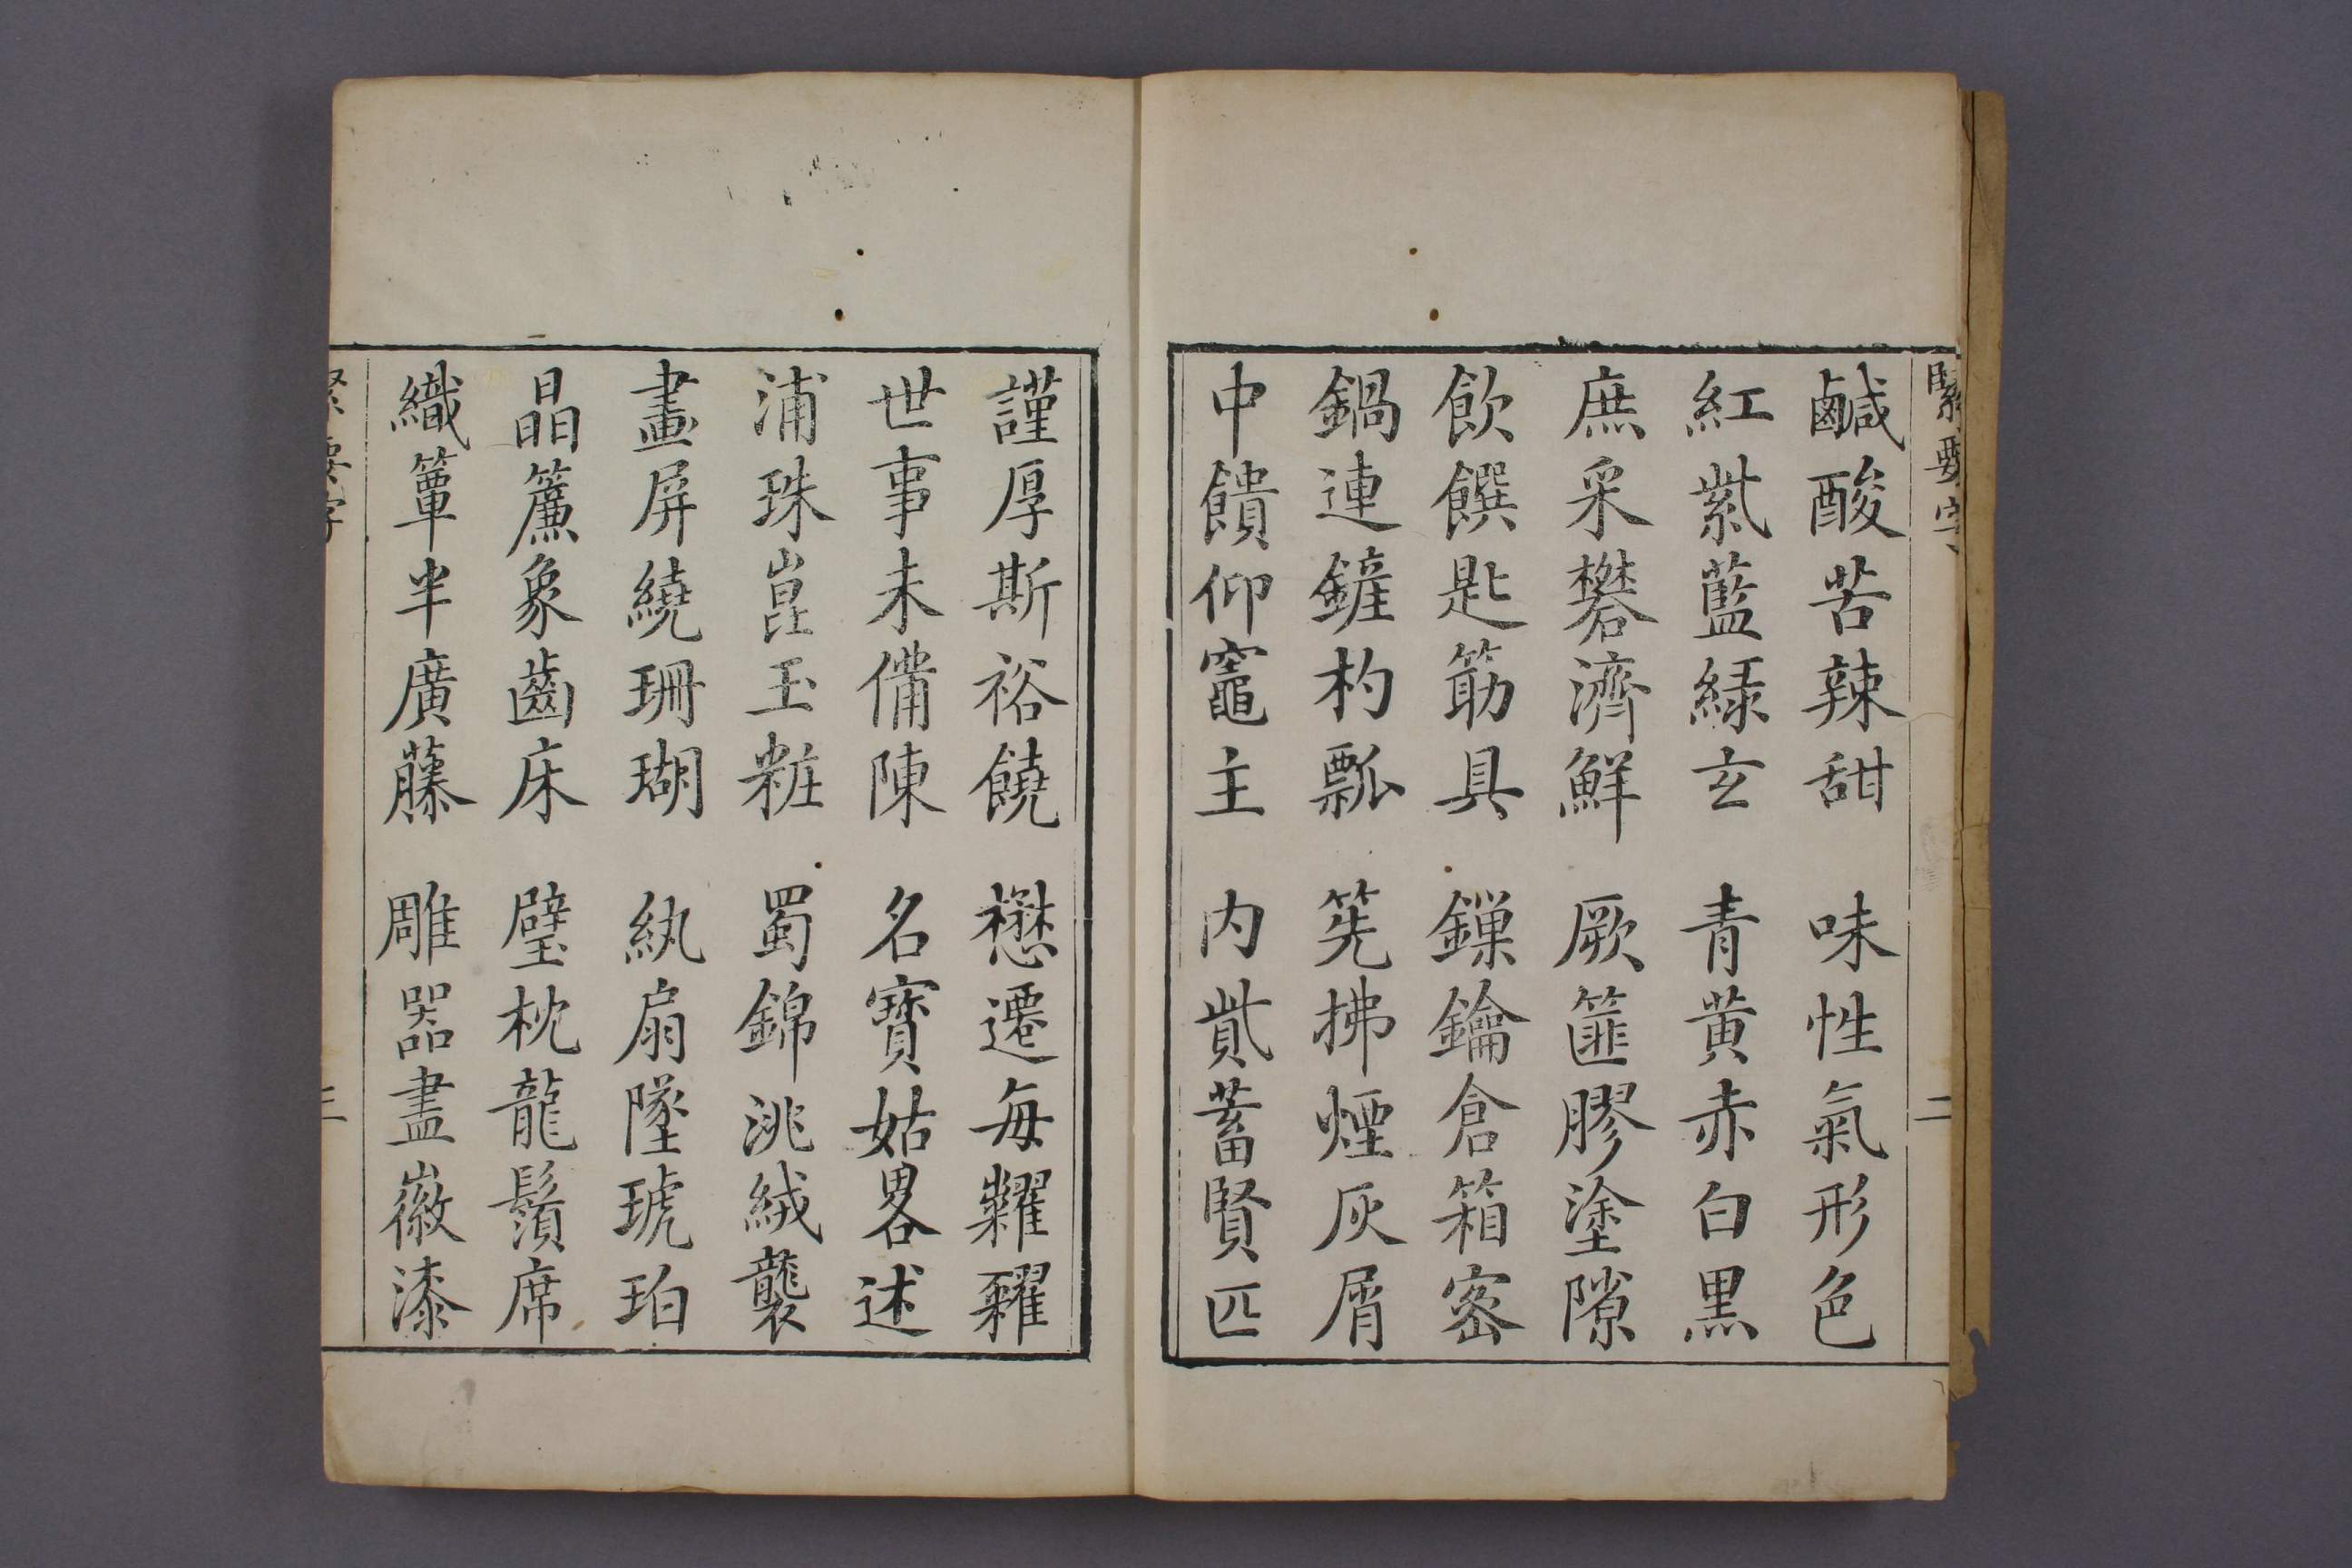 緊要字 二
鹹酸苦辣甜 味性氣形色
紅紫藍綠玄 青黄赤白黒
庶采礬濟鮮 厥篚膠塗隙
飲饌匙筯具 鏁鑰倉箱宻
鍋連鏟杓瓢 筅拂煙灰屑
中饋仰竈主 内貲蓄賢匹
謹厚斯裕饒 懋遷毎糶糴
世事未備陳 名寳姑畧述
浦珠崑玉粧 蜀錦洮絨襲
畫屏繞珊瑚 紈扇墜琥珀
晶簾象齒床 璧枕龍鬚席
織簟半廣藤 雕器盡徽漆
緊要字 三